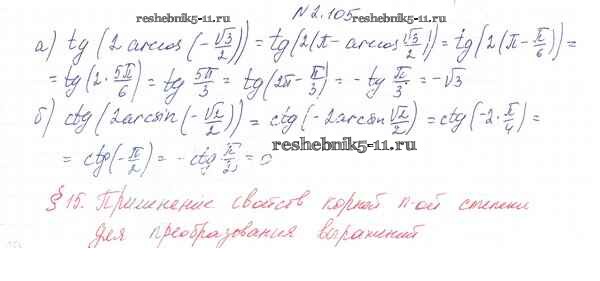 reshebnik5-11.ru №2.105 reshebnik5-11.ru
а) tg(2 arccos(-√3/2)) = tg(2(π - arccos √3/2)) = tg(2(π - π/6)) =
= tg(2·5π/6) = tg 5π/3 = tg(2π - π/3) = -tg π/3 = -√3
б) ctg(2arcsin(-√2/2)) = ctg(-2arcsin √2/2) = ctg(-2·π/4) =
reshebnik5-11.ru
= ctg(-π/2) = -ctg π/2 = 0
§ 15. Применение свойств корней n-ой степени
для преобразования выражений